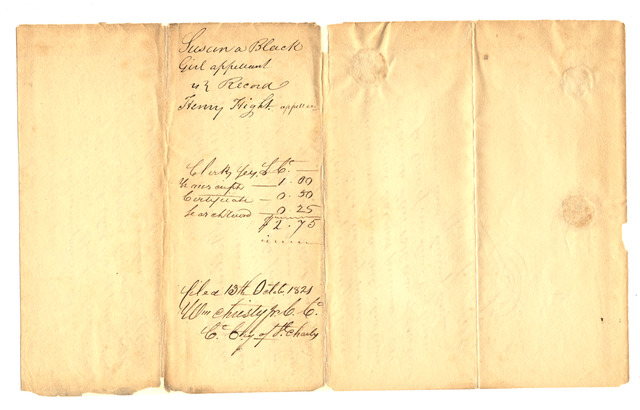 Susan a Black
Girl appellant
vs } Record
Henry Hight appellee
Clerks fees, $ Cts
Transcript — 1.00
Certificate — 0.50
Search & Record — 0.25
$ 2.75
filed 13th Octob. 1821
Wm Christy jr C. C.
Cy of St. Charles